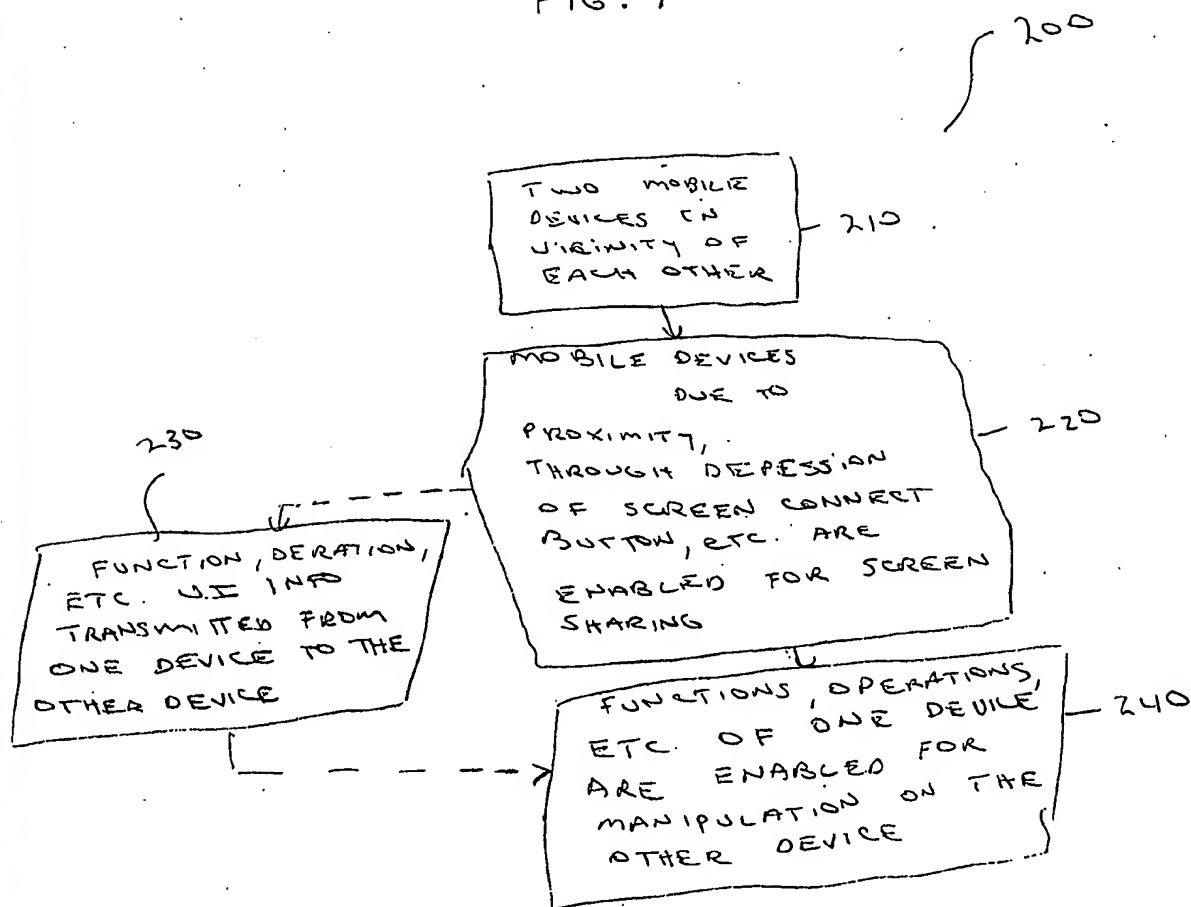 200
TWO MOBILE
DEVICES IN
VICINITY OF
EACH OTHER
210
MOBILE DEVICES
DUE TO
PROXIMITY,
THROUGH DEPESSION
OF SCREEN CONNECT
BUTTON, ETC. ARE
ENABLED FOR SCREEN
SHARING
220
230
FUNCTION, OERATION,
ETC. U.I INFO
TRANSMITTED FROM
ONE DEVICE TO THE
OTHER DEVICE
FUNCTIONS, OPERATIONS,
ETC. OF ONE DEVICE
ARE ENABLED FOR
MANIPULATION ON THE
OTHER DEVICE
240